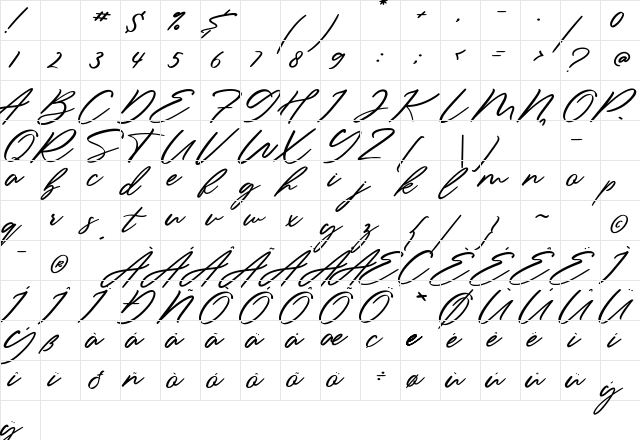 ! # $ % & ( ) * + , - . / 0
1 2 3 4 5 6 7 8 9 : ; < = > ? @
A B C D E F G H I J K L M N O P
Q R S T U V W X Y Z ( | ) –
a b c d e f g h i j k l m n o p
q r s t u v w x y z { / } ~ ©
– ® À Á Â Ã Ä Å Æ Ç È É Ê Ë Ì
Í Î Ï Ð Ñ Ò Ó Ô Õ Ö × Ø Ù Ú Û Ü
Ý ß à á â ã ä å æ ç è é ê ë ì í
î ï ð ñ ò ó ô õ ö ÷ ø ù ú û ü ý
ÿ